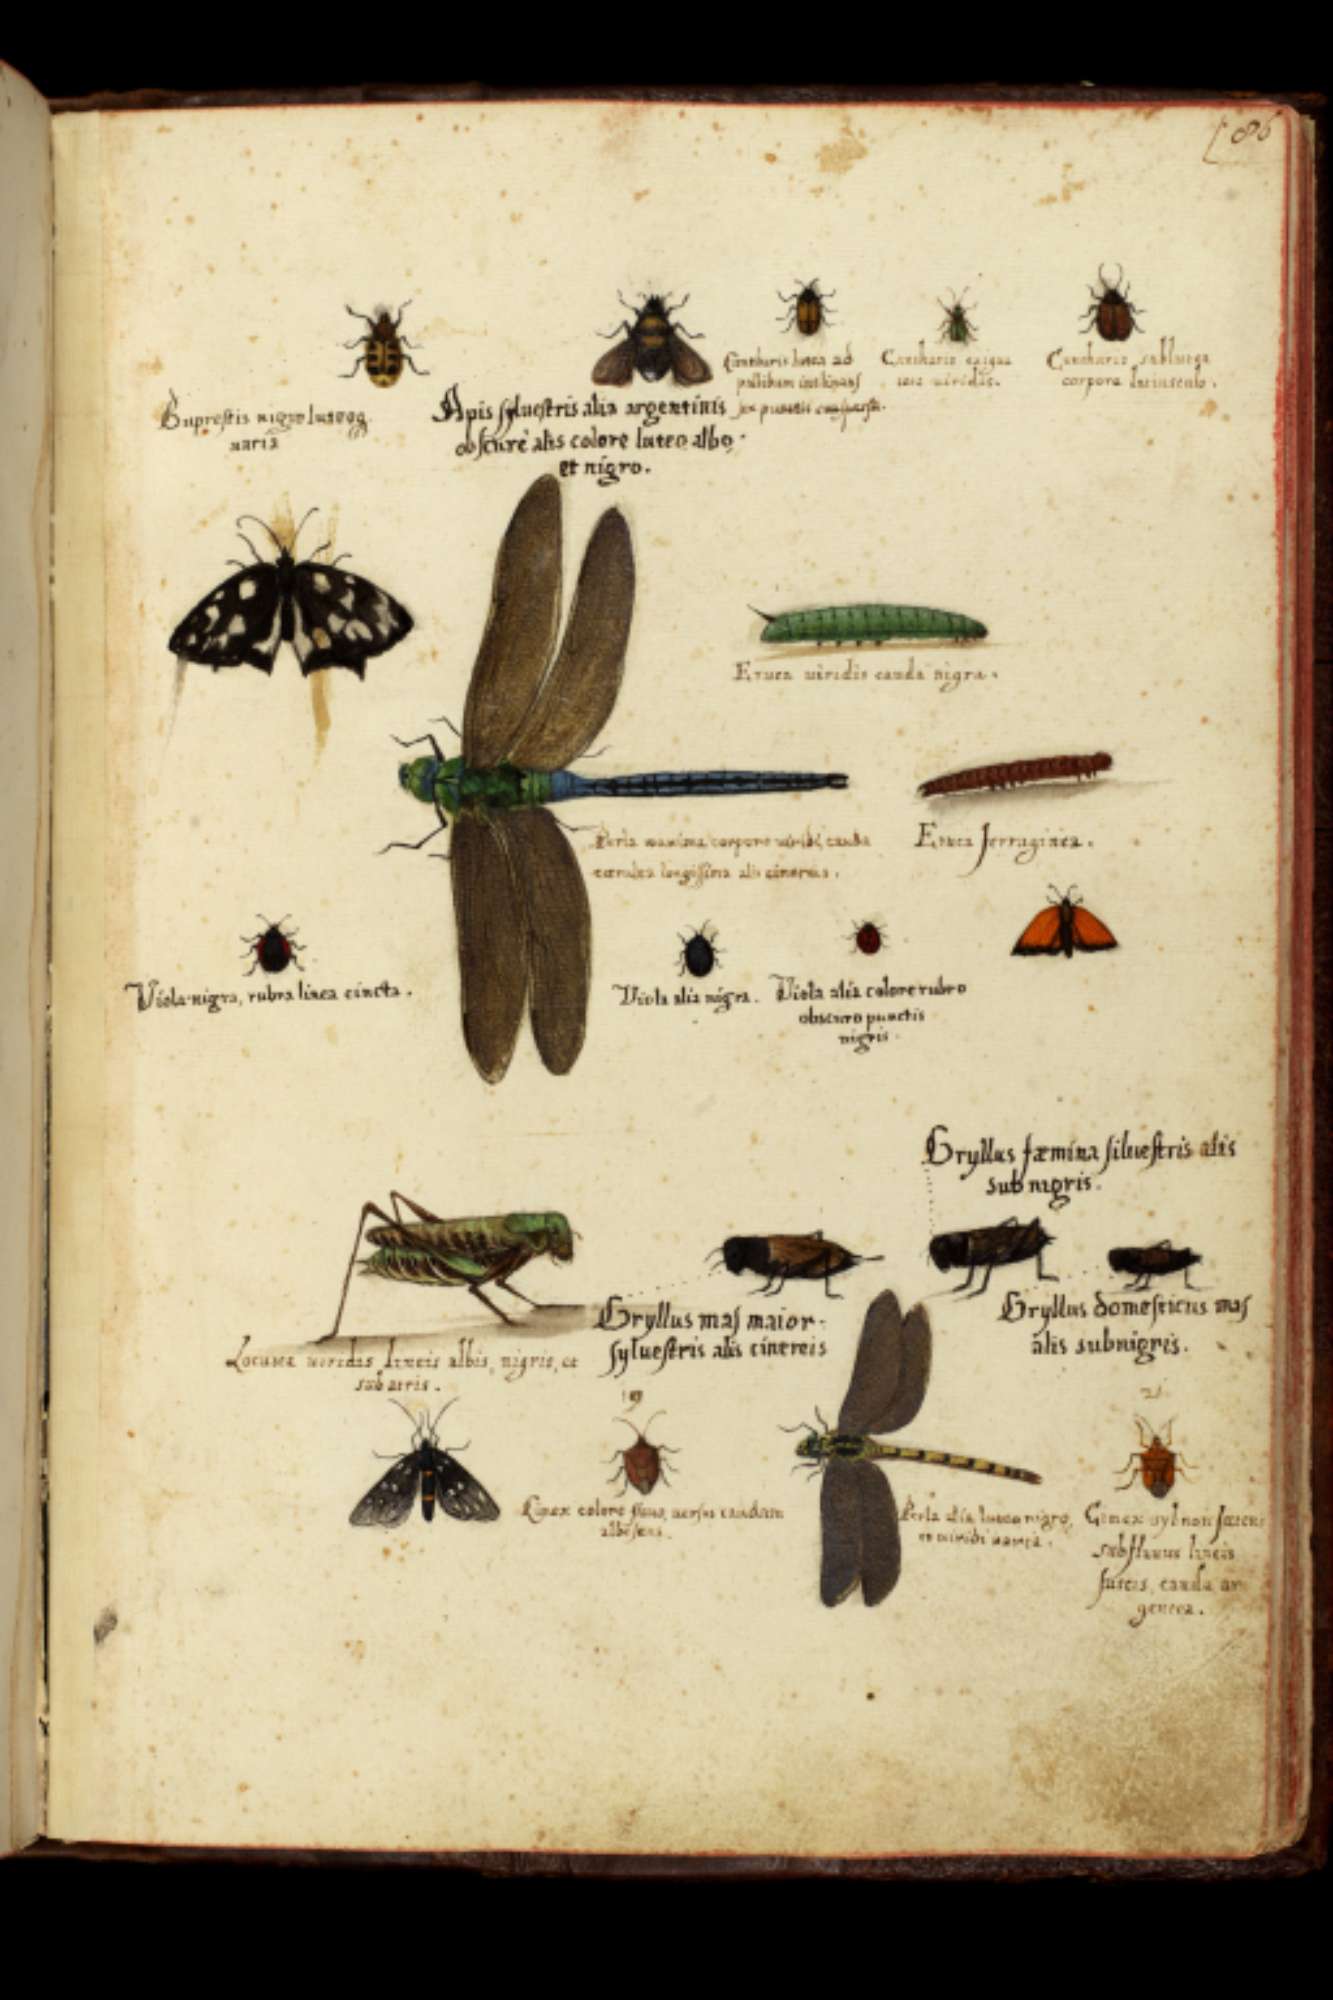 [86
Buprestis nigro luteoq
uaria
Apis sylvestris alia argentinis
obscure alis colore luteo albo
et nigro.
Cantharis lutea ad
pallidum inclinans
punctis
Cantharis exigua
uiridis.
Cantharis
corpore
Eruca uiridis cauda nigra.
Perla maxima corpore uiridi, cauda
cærulea longissima alis cinereis.
Eruca ferruginea.
Viola nigra, rubra linea cincta.
Viola alia nigra.
Viola alia colore rubro
obscuro punctis
nigris
Gryllus fæmina siluestris alis
subnigris.
Gryllus mas maior
syluestris alis cinereis
Gryllus domesticus mas
alis subnigris.
Locusta uiridis lineis albis, nigris, et
19
21
Cimex colore uersus caudam
Perla alia luteo nigro
et uiridi uaria.
Cimex
subflauus lineis
fuscis, cauda ar
gentea.